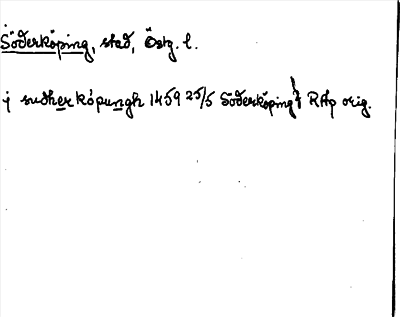 Söderköping, stad, Östg. l.
j sudherköpungh 1459 25/5 Söderköping RAp orig.